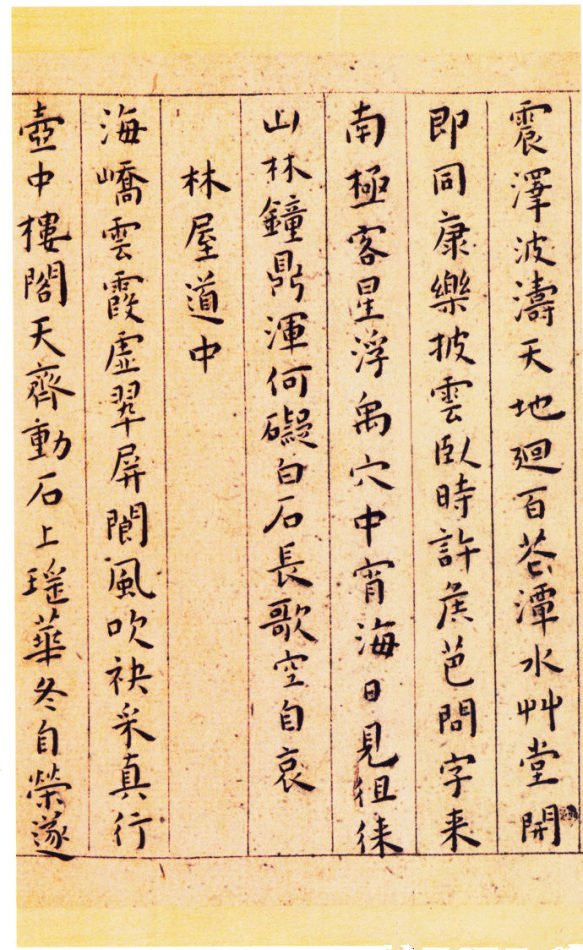 震澤波濤天地迴百花潭水艸堂開
即同康樂披雲臥時許矦芭問字来
南極客星浮禹穴中宵海日見徂徠
山林鐘鼎渾何礙白石長歌空自哀
林屋道中
海嶠雲霞虛翠屏閬風吹袂采真行
壺中樓閣天齊動石上瑤華冬自榮遂